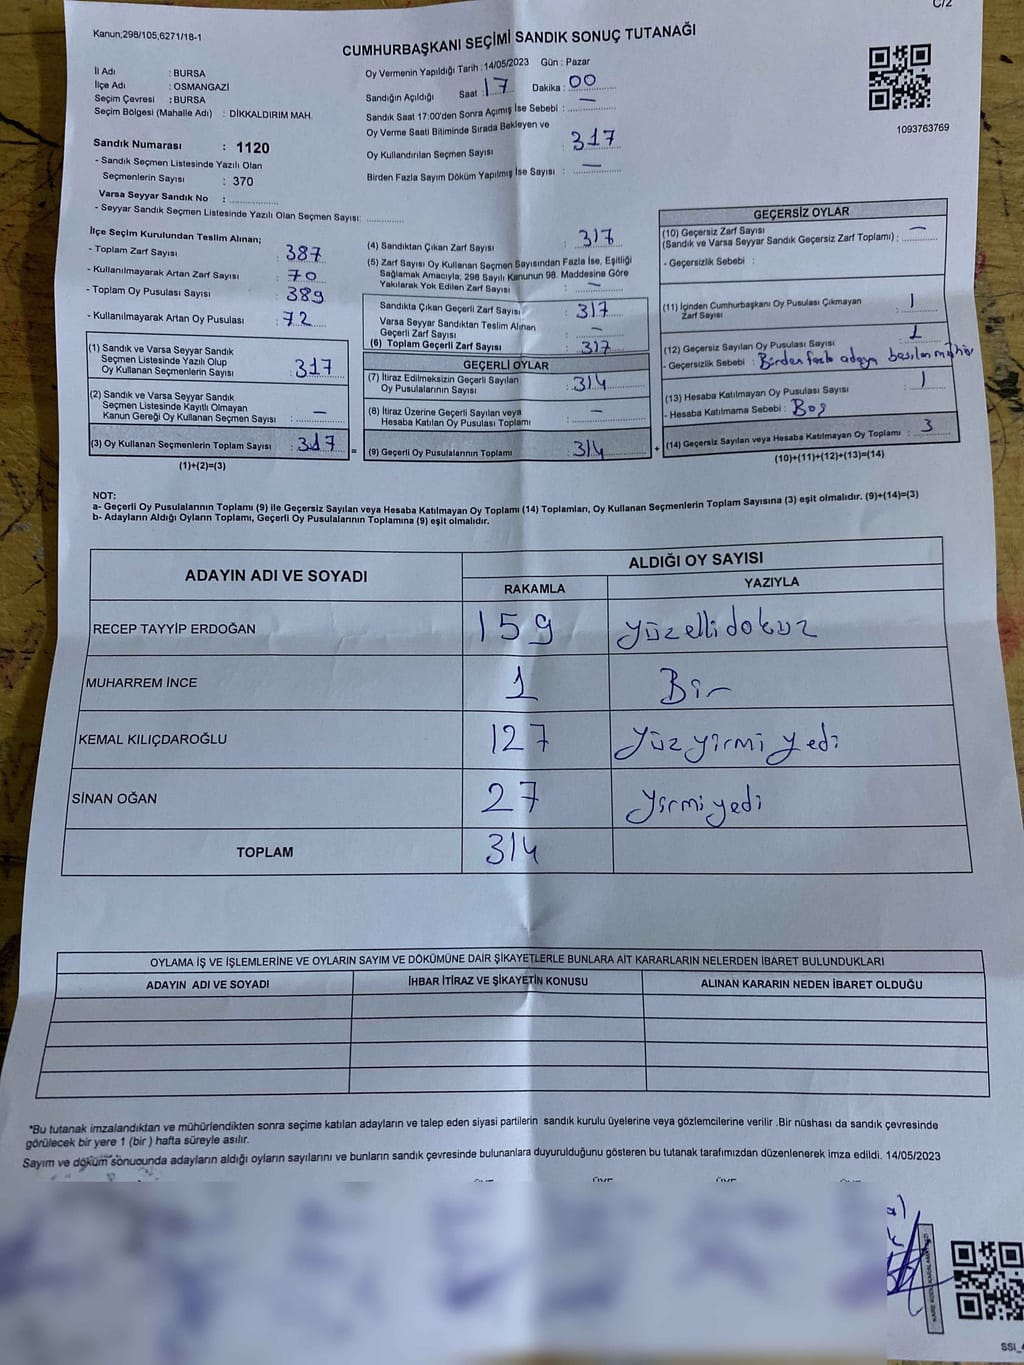 C/2
Kanun;298/105,6271/18-1
CUMHURBAŞKANI SEÇİMİ SANDIK SONUÇ TUTANAĞI
İl Adı : BURSA
İlçe Adı : OSMANGAZİ
Seçim Çevresi : BURSA
Seçim Bölgesi (Mahalle Adı) : DİKKALDIRIM MAH.
Oy Vermenin Yapıldığı Tarih : 14/05/2023 Gün : Pazar
Sandığın Açıldığı Saat : 17 Dakika : 00
Sandık Saat 17:00'den Sonra Açılmış İse Sebebi : —
Oy Verme Saati Bitiminde Sırada Bekleyen ve
Oy Kullandırılan Seçmen Sayısı : 317
Birden Fazla Sayım Döküm Yapılmış İse Sayısı : —
1093763769
Sandık Numarası : 1120
- Sandık Seçmen Listesinde Yazılı Olan
Seçmenlerin Sayısı : 370
Varsa Seyyar Sandık No :
- Seyyar Sandık Seçmen Listesinde Yazılı Olan Seçmen Sayısı:
İlçe Seçim Kurulundan Teslim Alınan;
- Toplam Zarf Sayısı : 387
- Kullanılmayarak Artan Zarf Sayısı : 70
- Toplam Oy Pusulası Sayısı : 389
- Kullanılmayarak Artan Oy Pusulası : 72
(1) Sandık ve Varsa Seyyar Sandık
Seçmen Listesinde Yazılı Olup
Oy Kullanan Seçmenlerin Sayısı : 317
(2) Sandık ve Varsa Seyyar Sandık
Seçmen Listesinde Kayıtlı Olmayan
Kanun Gereği Oy Kullanan Seçmen Sayısı : —
(3) Oy Kullanan Seçmenlerin Toplam Sayısı : 317
(1)+(2)=(3)
(4) Sandıktan Çıkan Zarf Sayısı : 317
(5) Zarf Sayısı Oy Kullanan Seçmen Sayısından Fazla İse, Eşitliği
Sağlamak Amacıyla; 298 Sayılı Kanunun 98. Maddesine Göre
Yakılarak Yok Edilen Zarf Sayısı : —
Sandıkta Çıkan Geçerli Zarf Sayısı : 317
Varsa Seyyar Sandıktan Teslim Alınan
Geçerli Zarf Sayısı : —
(6) Toplam Geçerli Zarf Sayısı : 317
GEÇERLİ OYLAR
(7) İtiraz Edilmeksizin Geçerli Sayılan
Oy Pusulalarının Sayısı : 314
(8) İtiraz Üzerine Geçerli Sayılan veya
Hesaba Katılan Oy Pusulası Toplamı : —
= (9) Geçerli Oy Pusulalarının Toplamı : 314 +
GEÇERSİZ OYLAR
(10) Geçersiz Zarf Sayısı
(Sandık ve Varsa Seyyar Sandık Geçersiz Zarf Toplamı) : —
- Geçersizlik Sebebi :
(11) İçinden Cumhurbaşkanı Oy Pusulası Çıkmayan
Zarf Sayısı : 1
(12) Geçersiz Sayılan Oy Pusulası Sayısı : 1
- Geçersizlik Sebebi : Birden fazla adaya basılan mühür
(13) Hesaba Katılmayan Oy Pusulası Sayısı : 1
- Hesaba Katılmama Sebebi : Boş
(14) Geçersiz Sayılan veya Hesaba Katılmayan Oy Toplamı : 3
(10)+(11)+(12)+(13)=(14)
NOT:
a- Geçerli Oy Pusulalarının Toplamı (9) ile Geçersiz Sayılan veya Hesaba Katılmayan Oy Toplamı (14) Toplamları, Oy Kullanan Seçmenlerin Toplam Sayısına (3) eşit olmalıdır. (9)+(14)=(3)
b- Adayların Aldığı Oyların Toplamı, Geçerli Oy Pusulalarının Toplamına (9) eşit olmalıdır.
ADAYIN ADI VE SOYADI
ALDIĞI OY SAYISI
RAKAMLA YAZIYLA
RECEP TAYYİP ERDOĞAN 159 yüzellidokuz
MUHARREM İNCE 1 Bir
KEMAL KILIÇDAROĞLU 127 yüzyirmi yedi
SİNAN OĞAN 27 yirmiyedi
TOPLAM 314
OYLAMA İŞ VE İŞLEMLERİNE VE OYLARIN SAYIM VE DÖKÜMÜNE DAİR ŞİKAYETLERLE BUNLARA AİT KARARLARIN NELERDEN İBARET BULUNDUKLARI
ADAYIN ADI VE SOYADI İHBAR İTİRAZ VE ŞİKAYETİN KONUSU ALINAN KARARIN NEDEN İBARET OLDUĞU
*Bu tutanak imzalandıktan ve mühürlendikten sonra seçime katılan adayların ve talep eden siyasi partilerin sandık kurulu üyelerine veya gözlemcilerine verilir .Bir nüshası da sandık çevresinde
görülecek bir yere 1 (bir ) hafta süreyle asılır.
Sayım ve döküm sonucunda adayların aldığı oyların sayılarını ve bunların sandık çevresinde bulunanlara duyurulduğunu gösteren bu tutanak tarafımızdan düzenlenerek imza edildi. 14/05/2023